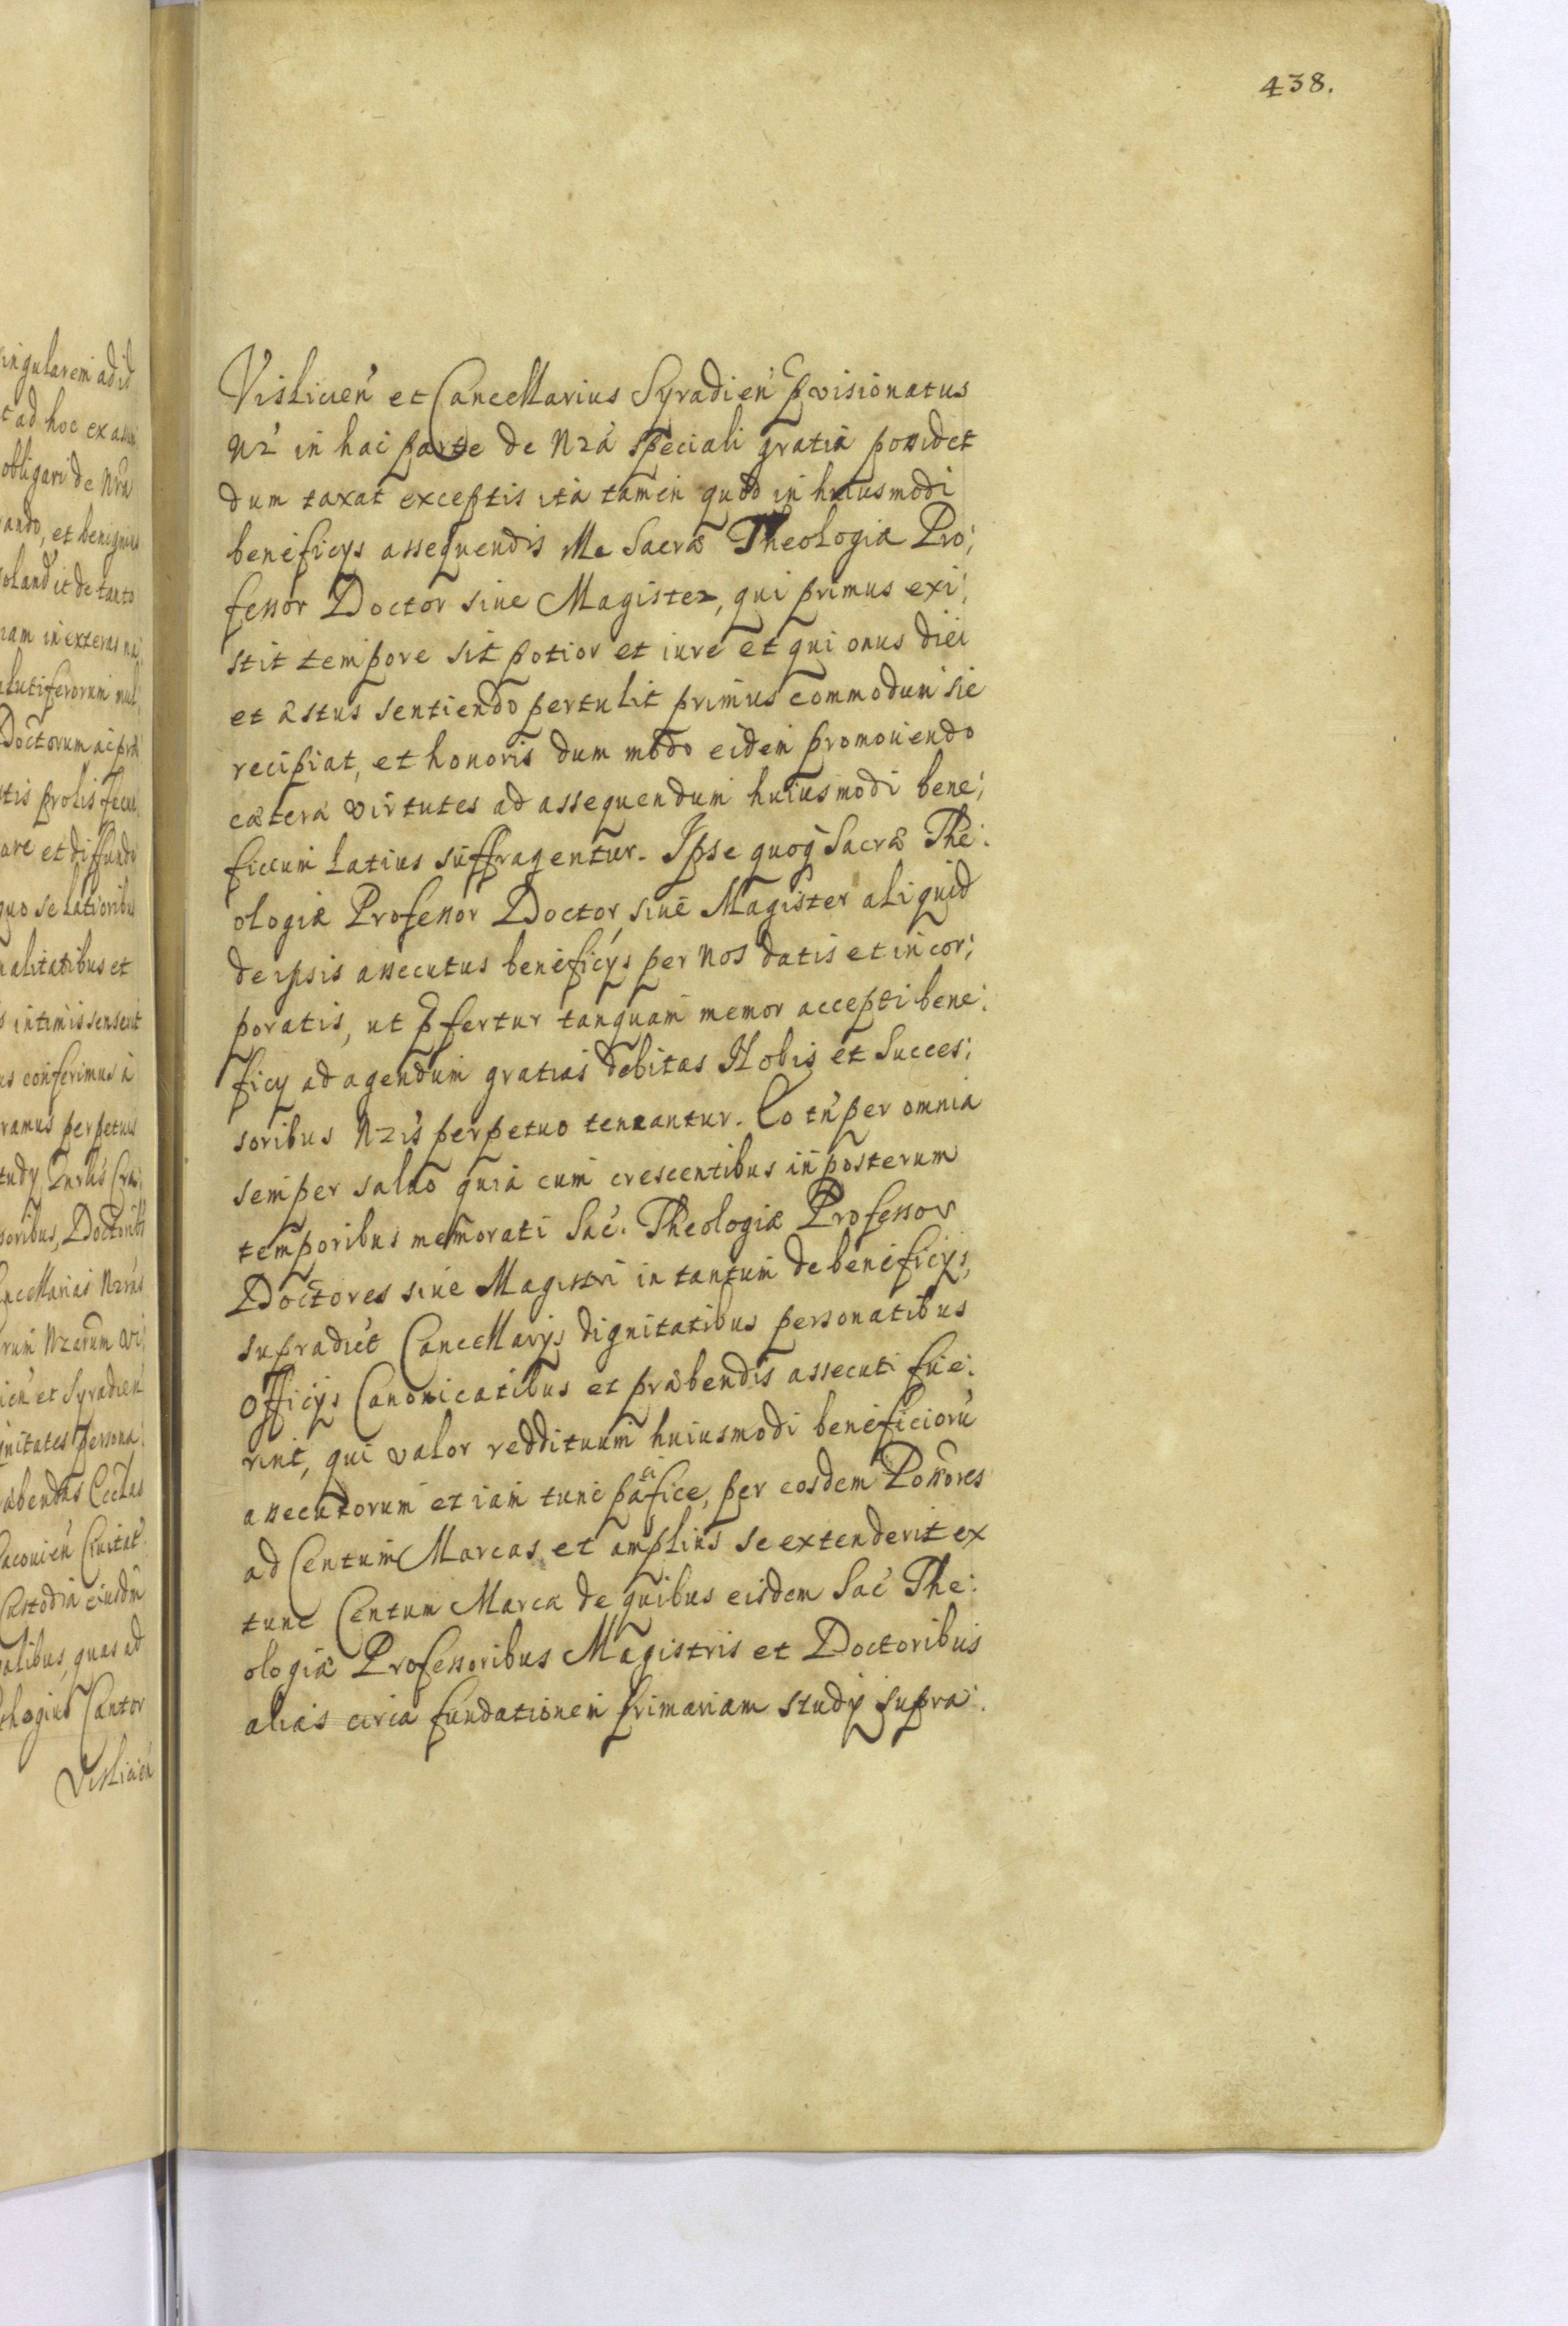 438.
Visliciεn̄ et Cancellarius Syradień Pvisionatus
Nr̃ in hac parte de Nrã speciali gratia possidet
dum taxat exceptis ita tamen quod in huiusmodi
beneficys assequendis Me Sacræ Theologiæ Pro:
fessor Doctor siue Magister, qui primus exi:
stit tempore sit potior et iure et qui onus diei
et æstus sentiendo pertulit primus commodum sic
recipiat, et honoris dum modo eidem promouendo
cætera virtutes ad assequendum huiusmodi bene:
ficium latius suffragentur. Ipse quoq Sacræ The:
ologiæ Professor Doctor, siue Magister aliquid
de ipsis assecutus beneficýs per nos datis et incor:
poratis, ut pfertur tanquam memor accepti bene:
ficy ad agendum gratias debitas Nobis et Succes:
soribus Nrĩs perpetuo teneantur. Eo tń per omnia
semper saluo quia cum crescentibus in posterum
temporibus memorati Sac. Theologiæ Professor
Doctores siue Magistri in tantum de beneficys,
supradict Cancellarijs dignitatibus personatibus
officijs Canonicatibus et præbendis assecuti fue:
rint, qui valor reddituum huiusmodi beneficiorũ
assecutorum et iam tunc pacifice, per eosdem Possores
ad Centum Marcas, et amplius se extenderit ex
tunc Centum Marca de quibus eisdem Sac The:
ologiæ Professoribus Magistris et Doctoribus
alias circa fundationem primariam study supra:
singularem ad id
t ad hoc ex
obligari de Nrã
ando, et benignius
it de tanto
iam in exteras na:
alutiferorum mul:
Doctorum ac præ
tis prolis fecu
are et diffundi
quo se latioribus
nalitatibus et
intimis senserit
us conferimus a
ramus perpetuis
tudy Cra:
soribus, Doctoribs
ancellarias Nrãs
rum Nrarum Vi:
icń et Syradien
gnitates persona:
ræbendas Eccłas
acouień Ciuitat
Custodia eiusdm
alibus, quas ad
Cantor
Vislicień